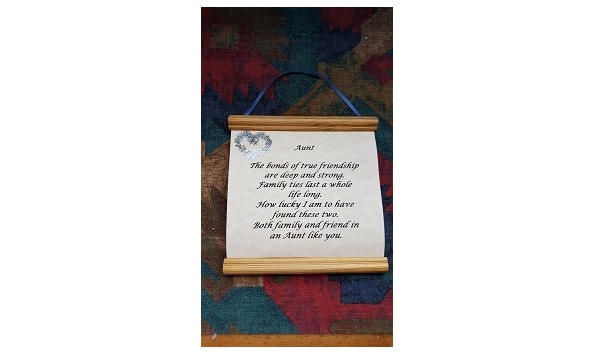 Aunt
The bonds of true friendship
are deep and strong.
Family ties last a whole
life long.
How lucky I am to have
found these two.
Both family and friend in
an Aunt like you.